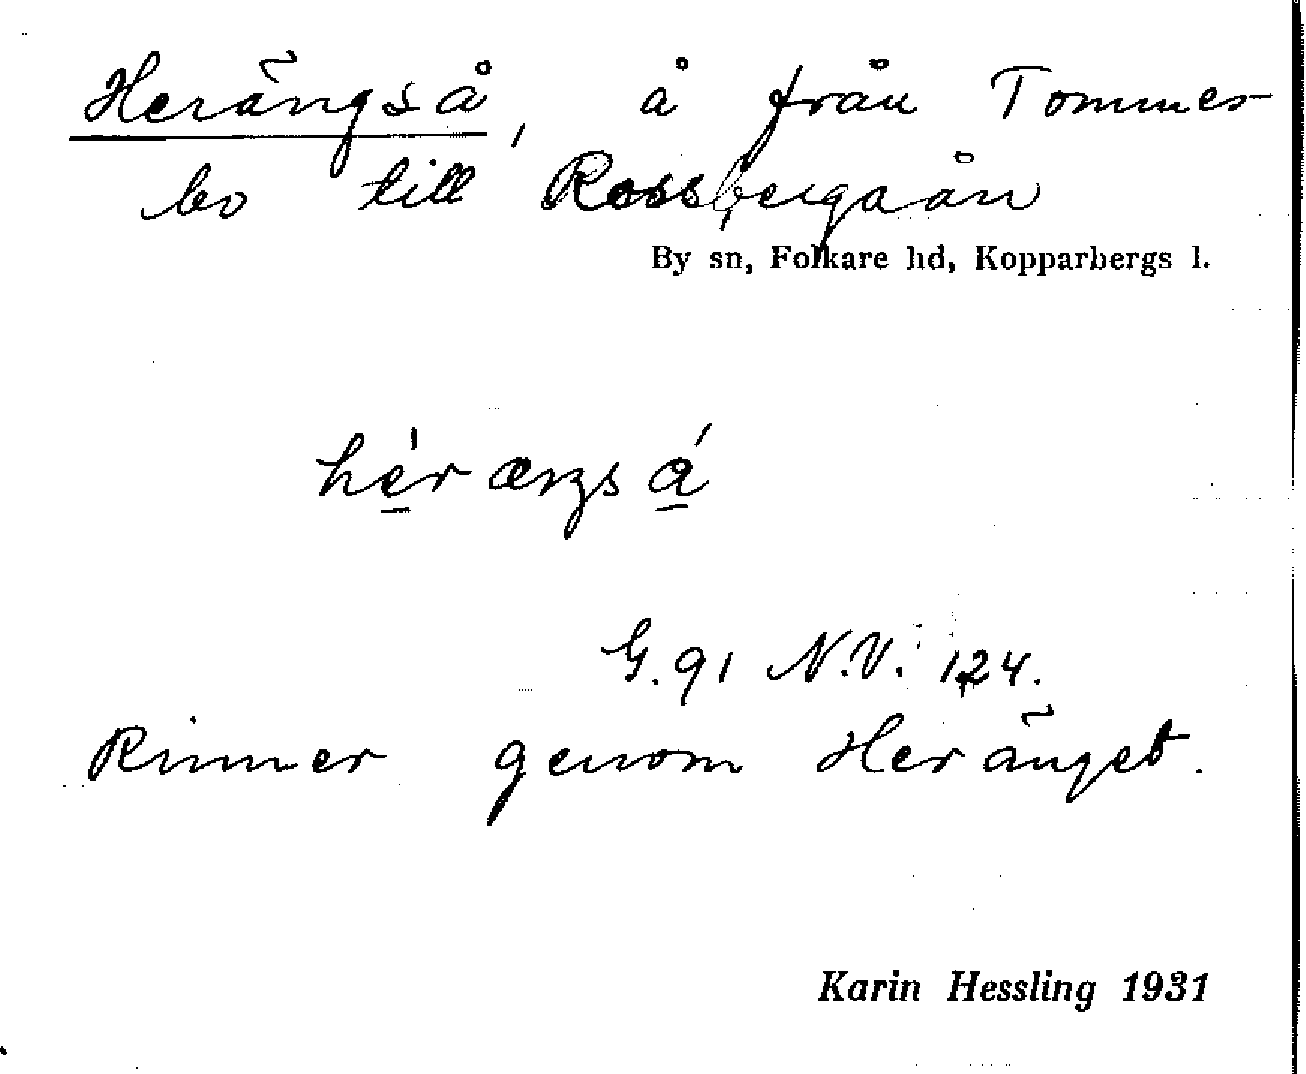 Herängså, å från Tommes-
bo till Rossbergaån
By sn, Folkare hd, Kopparbergs l.
G. 91 N.V. 124.
Rinner genom Heränget.
Karin Hessling 1931